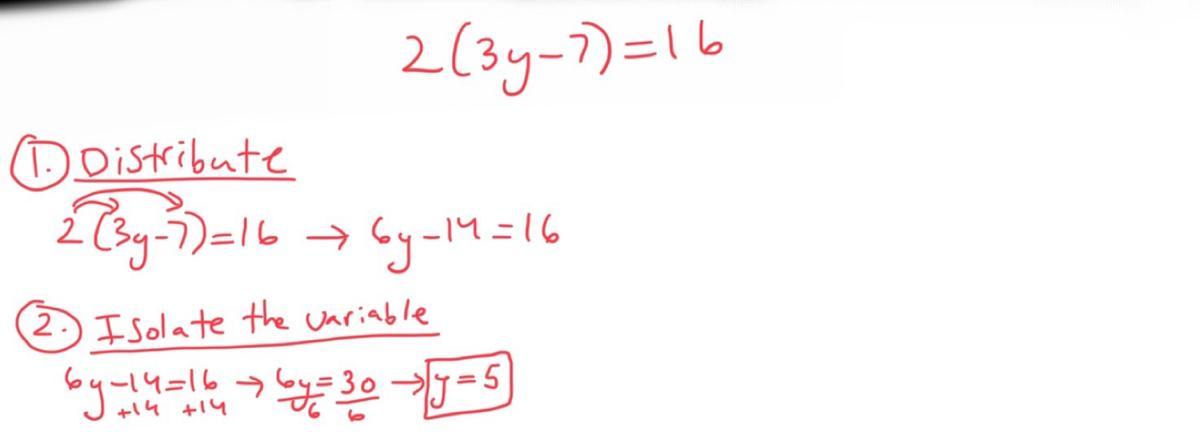 2(3y-7)=16
1. Distribute
2(3y-7)=16 → 6y-14=16
2. Isolate the variable
6y-14=16 → 6y=30 → y=5
+14 +14 6 6